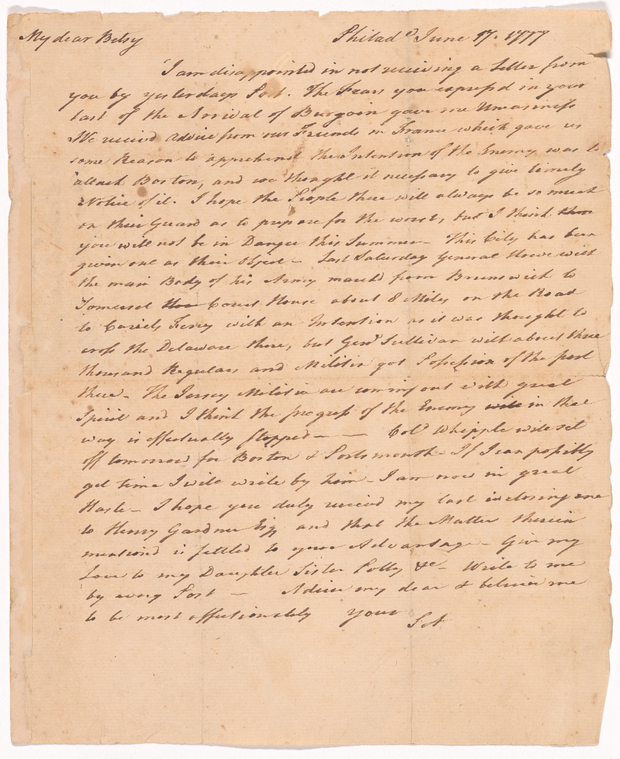 My dear Betsy Philad.ᵃ June 17. 1777
I am disappointed in not receiving a Letter from
you by yesterdays Post. The Fears you expressd in your
last of the Arrival of Burgoin gave me Uneasiness
We receivd advice from our Friends in France which gave us
some Reason to apprehend the Intention of the Enemy was to
attack Boston, and we thought it necessary to give timely
Notice of it. I hope the People there will always be so much
on their Guard as to prepare for the worst, but I think
you will not be in Danger this Summer — This City has been
given out as their Object — Last Saturday General Howe with
the main Body of his Army marchd from Brunswick to
Somerset Court House about 8 Miles on the Road
to Coriels Ferry with an Intention as it was thought to
cross the Delaware there, but Genˡ Sullivan with about three
thousand Regulars and Militia got Possession of the post
there — The Jersey Militia are coming out with great
Spirit and I think the progress of the Enemy in that
way is effectually stopped — — Colº Whipple will set
off tomorrow for Boston & Portsmouth — If I can possibly
get time I will write by him — I am now in great
Haste — I hope you duly receivd my last inclosing one
to Henry Gardner Esqʳ and that the Matter therein
mentiond is settled to your Advantage — Give my
Love to my Daughter Sister Polly &c — Write to me
by every Post — Adieu my dear & believe me
to be most affectionately Yours
S A